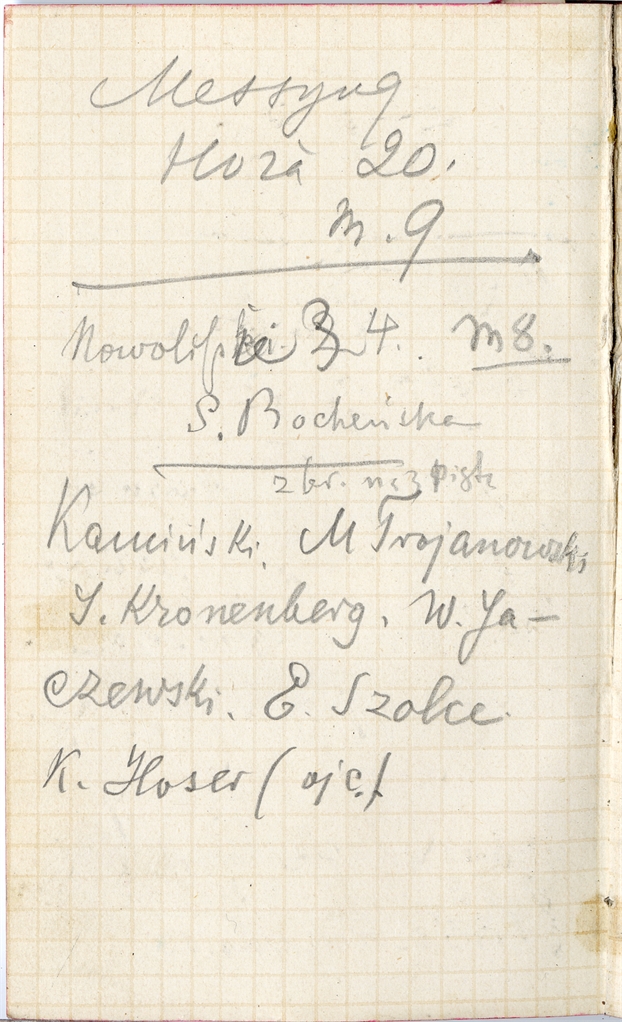 Messyng
Hoża 20.
m. 9
Nowolipki 34. m 8.
S. Bocheńska
zbr. na 3 piętr
Kamiński, M Trojanowski
S. Kronenberg, W. Ja-
czewski, E. Szolce
K. Hoser (ojc.)